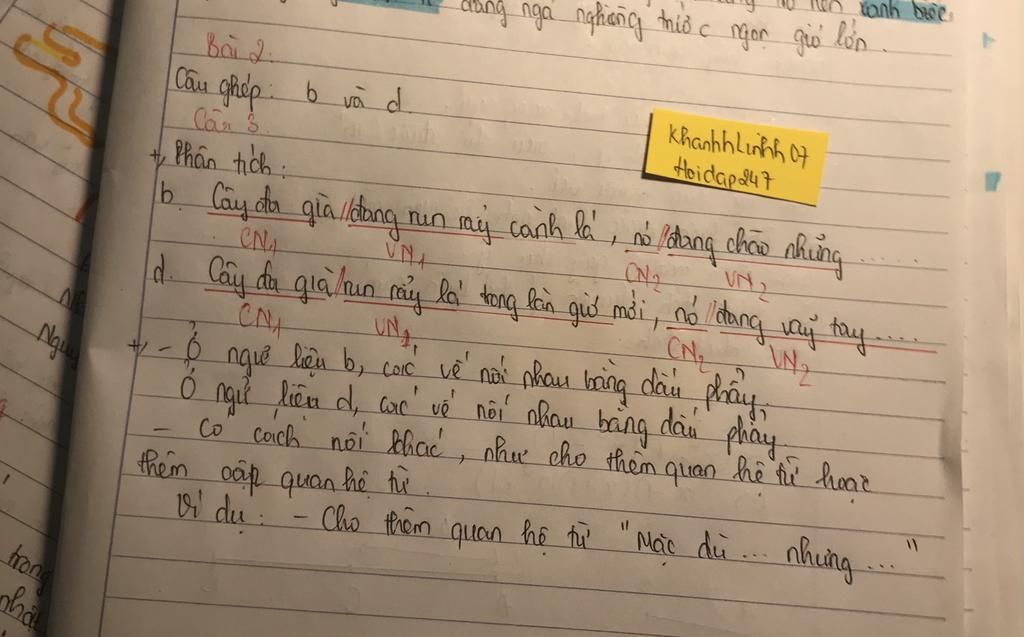 đang ngả nghiêng trước ngọn gió lớn.
xanh biếc.
Bài 2.
Câu ghép: b và d
Câu 3.
+, Phân tích:
KhanhhLinhh07
Hoidap247
b. Cây đa già//đang run rẩy cành lá, nó//đang chào những .....
CN1 VN1 CN2 VN2
d. Cây đa già//run rẩy lá trong làn gió mới, nó//đang vẫy tay....
CN1 VN1 CN2 VN2
+, - Ở ngữ liệu b, các vế nối nhau bằng dấu phẩy.
Ở ngữ liệu d, các vế nối nhau bằng dấu phẩy.
- Có cách nối khác, như cho thêm quan hệ từ hoặc
thêm cặp quan hệ từ.
Ví dụ: - Cho thêm quan hệ từ "Mặc dù ... nhưng ..."
trong